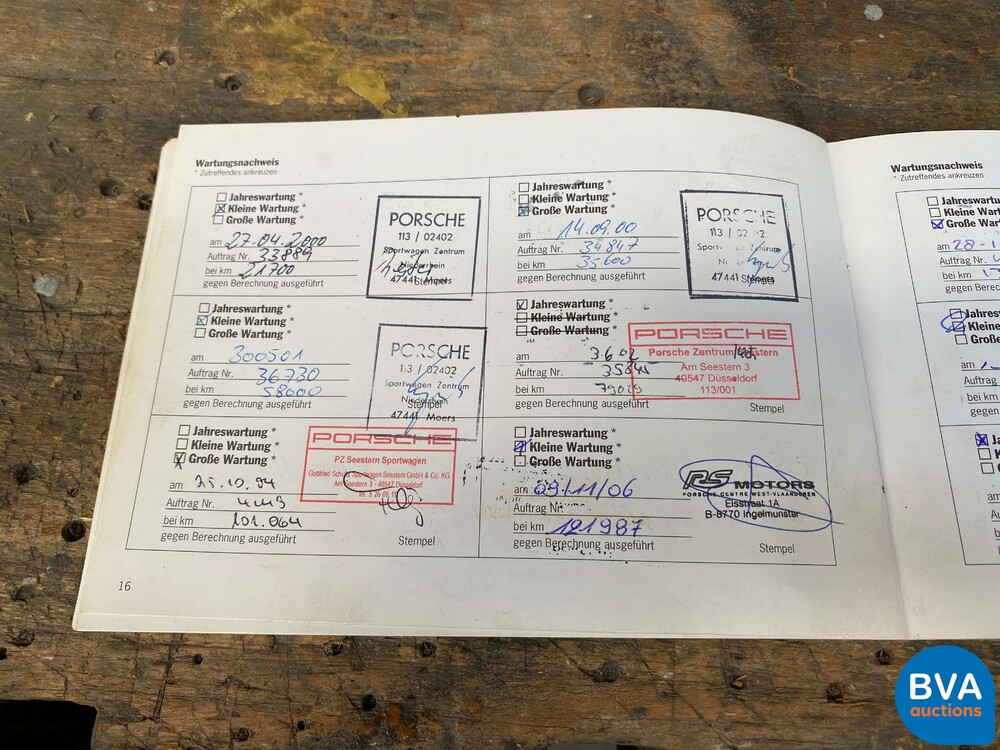 Wartungsnachweis
* Zutreffendes ankreuzen
Jahreswartung *
Kleine Wartung *
Große Wartung *
am 27.04.2000
Auftrag Nr. 33889
bei km 21700
gegen Berechnung ausgeführt
PORSCHE
113 / 02402
Sportwagen Zentrum
Niederrhein
47441 Moers
Stempel
Jahreswartung *
Kleine Wartung *
Große Wartung *
am 14.09.00
Auftrag Nr. 34847
bei km 35600
gegen Berechnung ausgeführt
PORSCHE
113 / 02
Zentrum
47441 Moers
Stempel
Jahreswartung *
Kleine Wartung *
Große Wartung *
am 300501
Auftrag Nr. 36730
bei km 58600
gegen Berechnung ausgeführt
PORSCHE
113 /02402
Sportwagen Zentrum
Stempel
47441 Moers
Jahreswartung *
Kleine Wartung *
Große Wartung *
am 3.6.02
Auftrag Nr. 35845
bei km
gegen Berechnung ausgeführt
PORSCHE
Porsche Zentrum
Am Seestern 3
40547 Düsseldorf
113/001
Stempel
Jahreswartung *
Kleine Wartung *
Große Wartung *
am
Auftrag Nr.
bei km 101.064
gegen Berechnung ausgeführt
PORSCHE
PZ Seestern Sportwagen
Sportwagen Seestern GmbH & Co. KG
Am Seestern 3 · 40547 Düsseldorf
Stempel
Jahreswartung *
Kleine Wartung *
Große Wartung *
am 09/11/06
Auftrag Nr.
bei km 121987
gegen Berechnung ausgeführt
RS MOTORS
PORSCHE CENTRE WEST-VLAANDEREN
Eisstraat 1A
B-8770 Ingelmunster
Stempel
16
Wartungsnachweis
* Zutreffendes ankreuzen
Große
am 28-1
Auftrag Nr.
bei km
gegen Berec
Jahres
Kleine
Große
am
Auftrag
bei km
gegen
Große
am
Auftrag
bei km
gegen
BVA
auctions